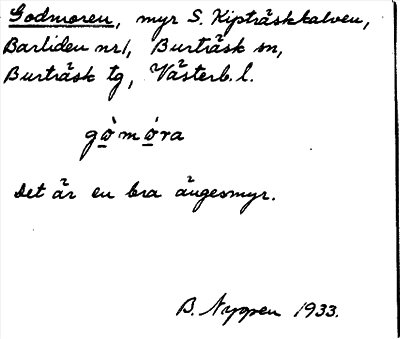 Godmoren, myr S. Kipträskkalven,
Barliden nr 1, Burträsk sn,
Burträsk tg, Västerb. l.
gò̱mó̱ra
Det är en bra ängesmyr.
B. Nyppen 1933.